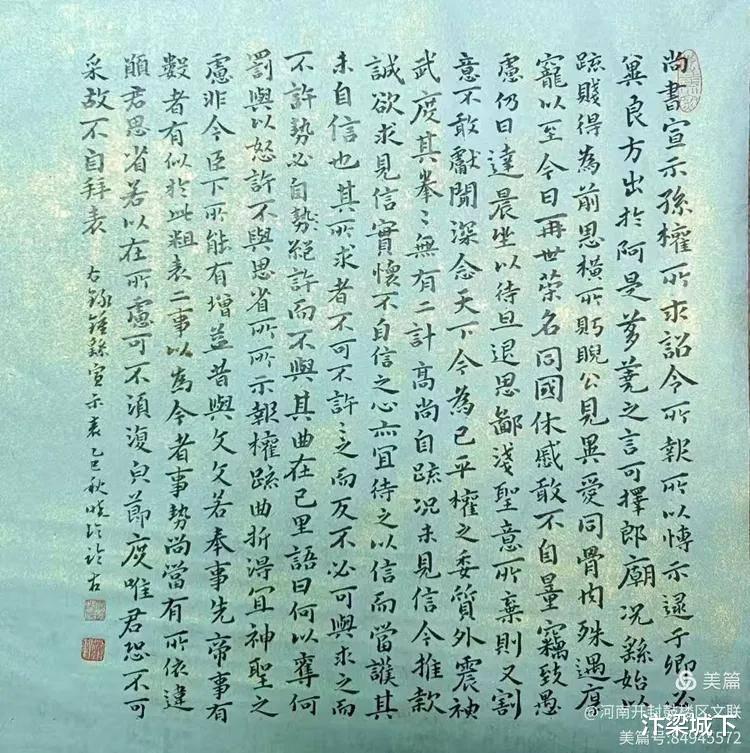 尚書宣示孫權所求詔令所報所以博示逮于卿佐
冀良方出於阿是芻蕘之言可擇郎廟况繇始以
疏賤得為前恩橫所眄睨公見異愛同骨肉殊遇厚
寵以至今日再世榮名同國休慼敢不自量竊致愚
慮仍日達晨坐以待旦退思鄙淺聖意所棄則又割
意不敢獻聞深念天下今為已平權之委質外震神
武度其拳〻無有二計高尚自疏况未見信今推款
誠欲求見信實懷不自信之心亦宜待之以信而當護其
未自信也其所求者不可不許〻之而反不必可與求之而
不許勢必自勢絕許而不與其曲在已里語曰何以奪何
罰與以怒許不與思省所所示報權疏曲折得宜神聖之
慮非今臣下所能有增益昔與文文若奉事先帝事有
數者有似於此粗表二事以為今者事勢尚當有所依違
願君思省若以在所慮可不須復貞節度唯君恐不可
采故不自拜表 右錄鍾繇宣示表乙巳秋
美篇
@河南开封鼓楼区文联
美篇号:84943572
汴梁城下